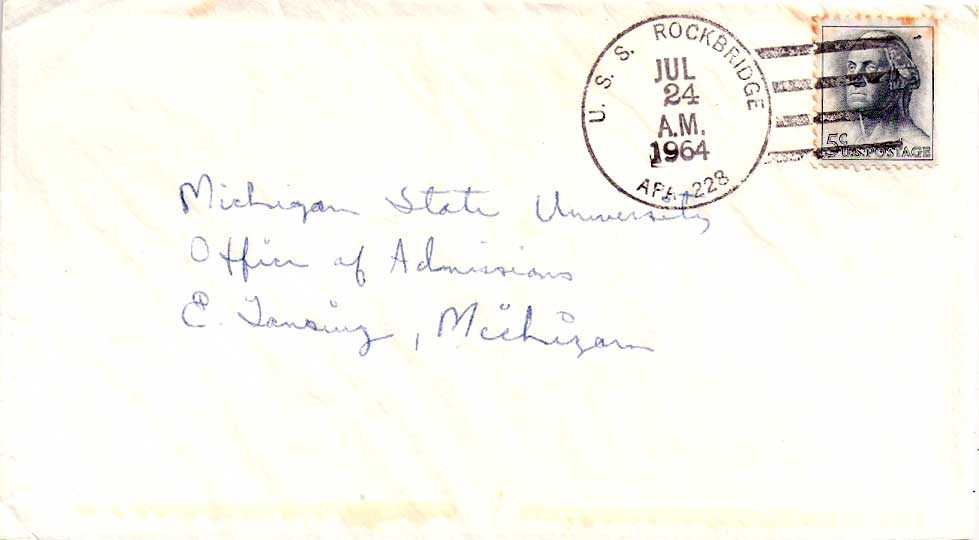 U. S. S. ROCKBRIDGE
JUL
24
A.M.
1964
APA-228
5¢
U.S. POSTAGE
Michigan State University
Office of Admissions
E. Lansing, Michigan